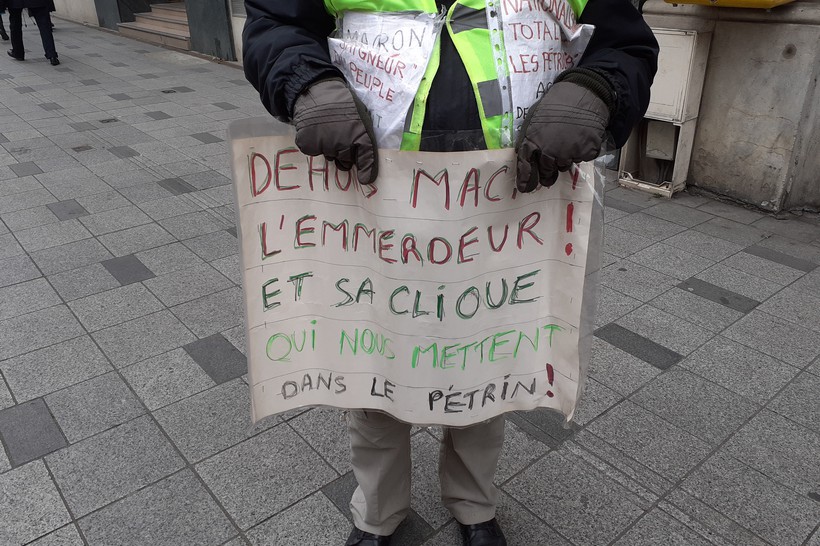 MACRON
SAIGNEUR
DU PEUPLE
NATIONALI
TOTAL
LES PÉTR
DEHORS MACRON
L'EMMERDEUR !
ET SA CLIQUE
QUI NOUS METTENT
DANS LE PÉTRIN !